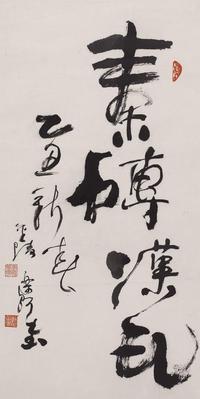 秦磚漢瓦
乙丑新春